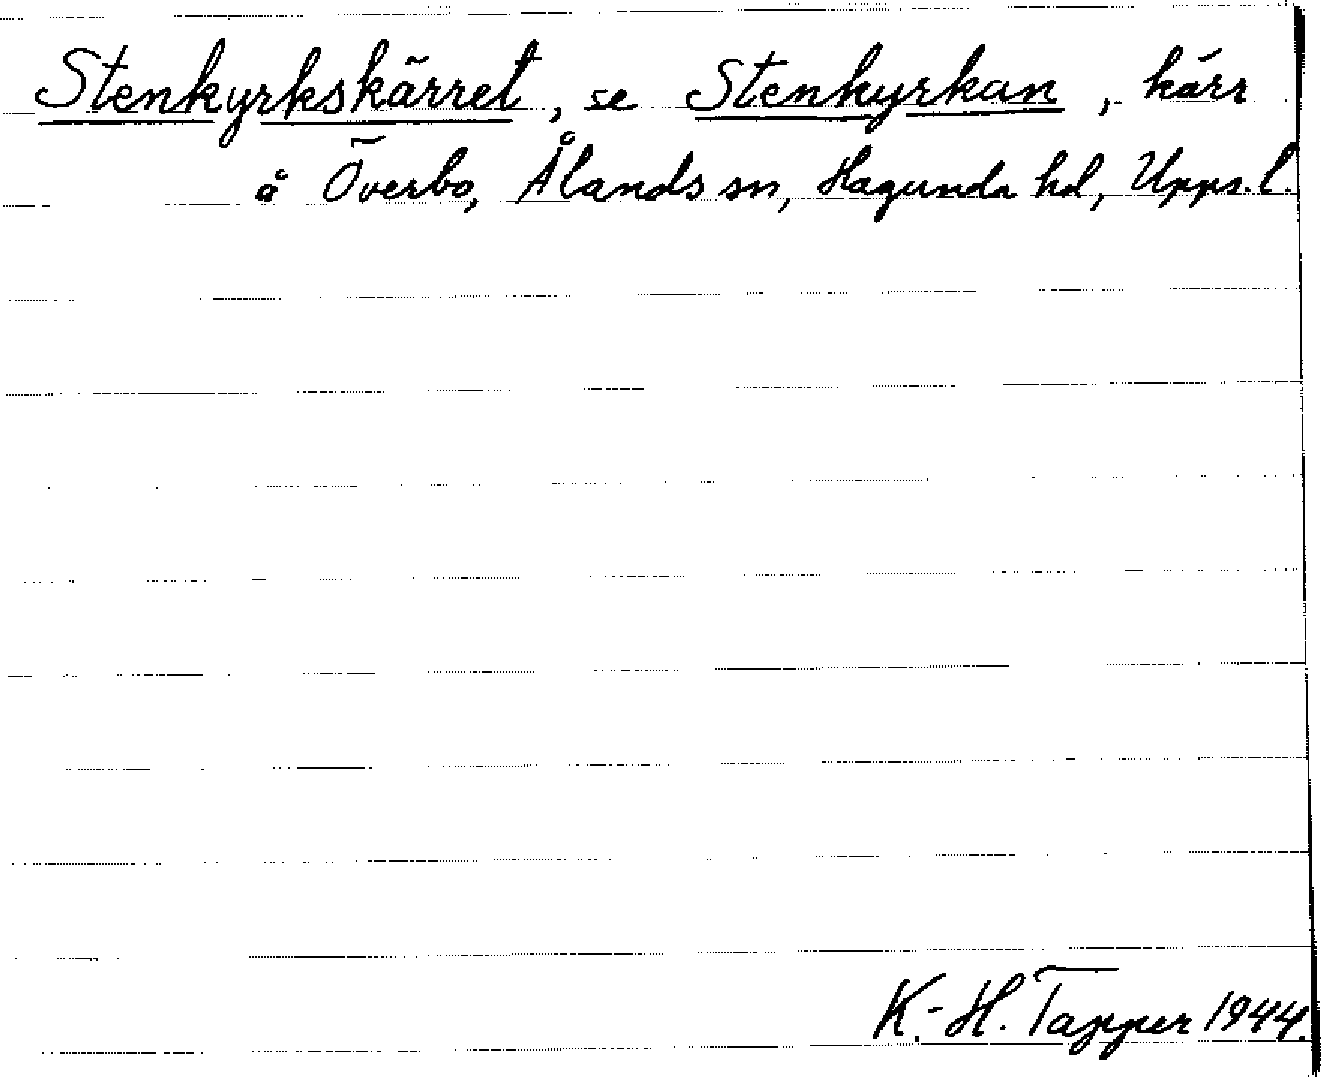 Stenkyrkskärret, se Stenkyrkan, kärr
å Överbo, Ålands sn, Hagunda hd, Upps. l.
K.-H. Tapper 1944.